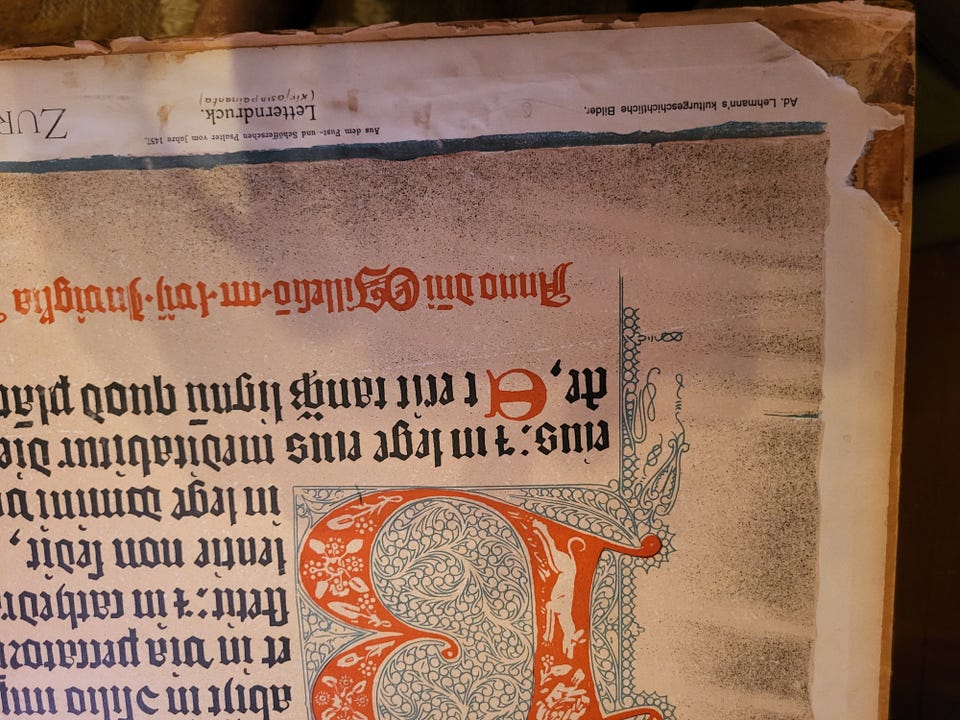 abijt in ɔſilio imp
et in via peccatorū
ſtetit: ⁊ in cathedra
lentie non ſedit,
in lege domini vo
eius: ⁊ in lege eius meditabitur die
te, Et erit tanqȝ lignū quod plāt
Anno dñi Milleſiō cccc lvij In vigilia
Ad. Lehmann's kulturgeschichtliche Bilder.
Aus dem Fust- und Schöfferschen Psalter vom Jahre 1457.
Letterndruck.
(Kirjasinpainanta)
ZUR